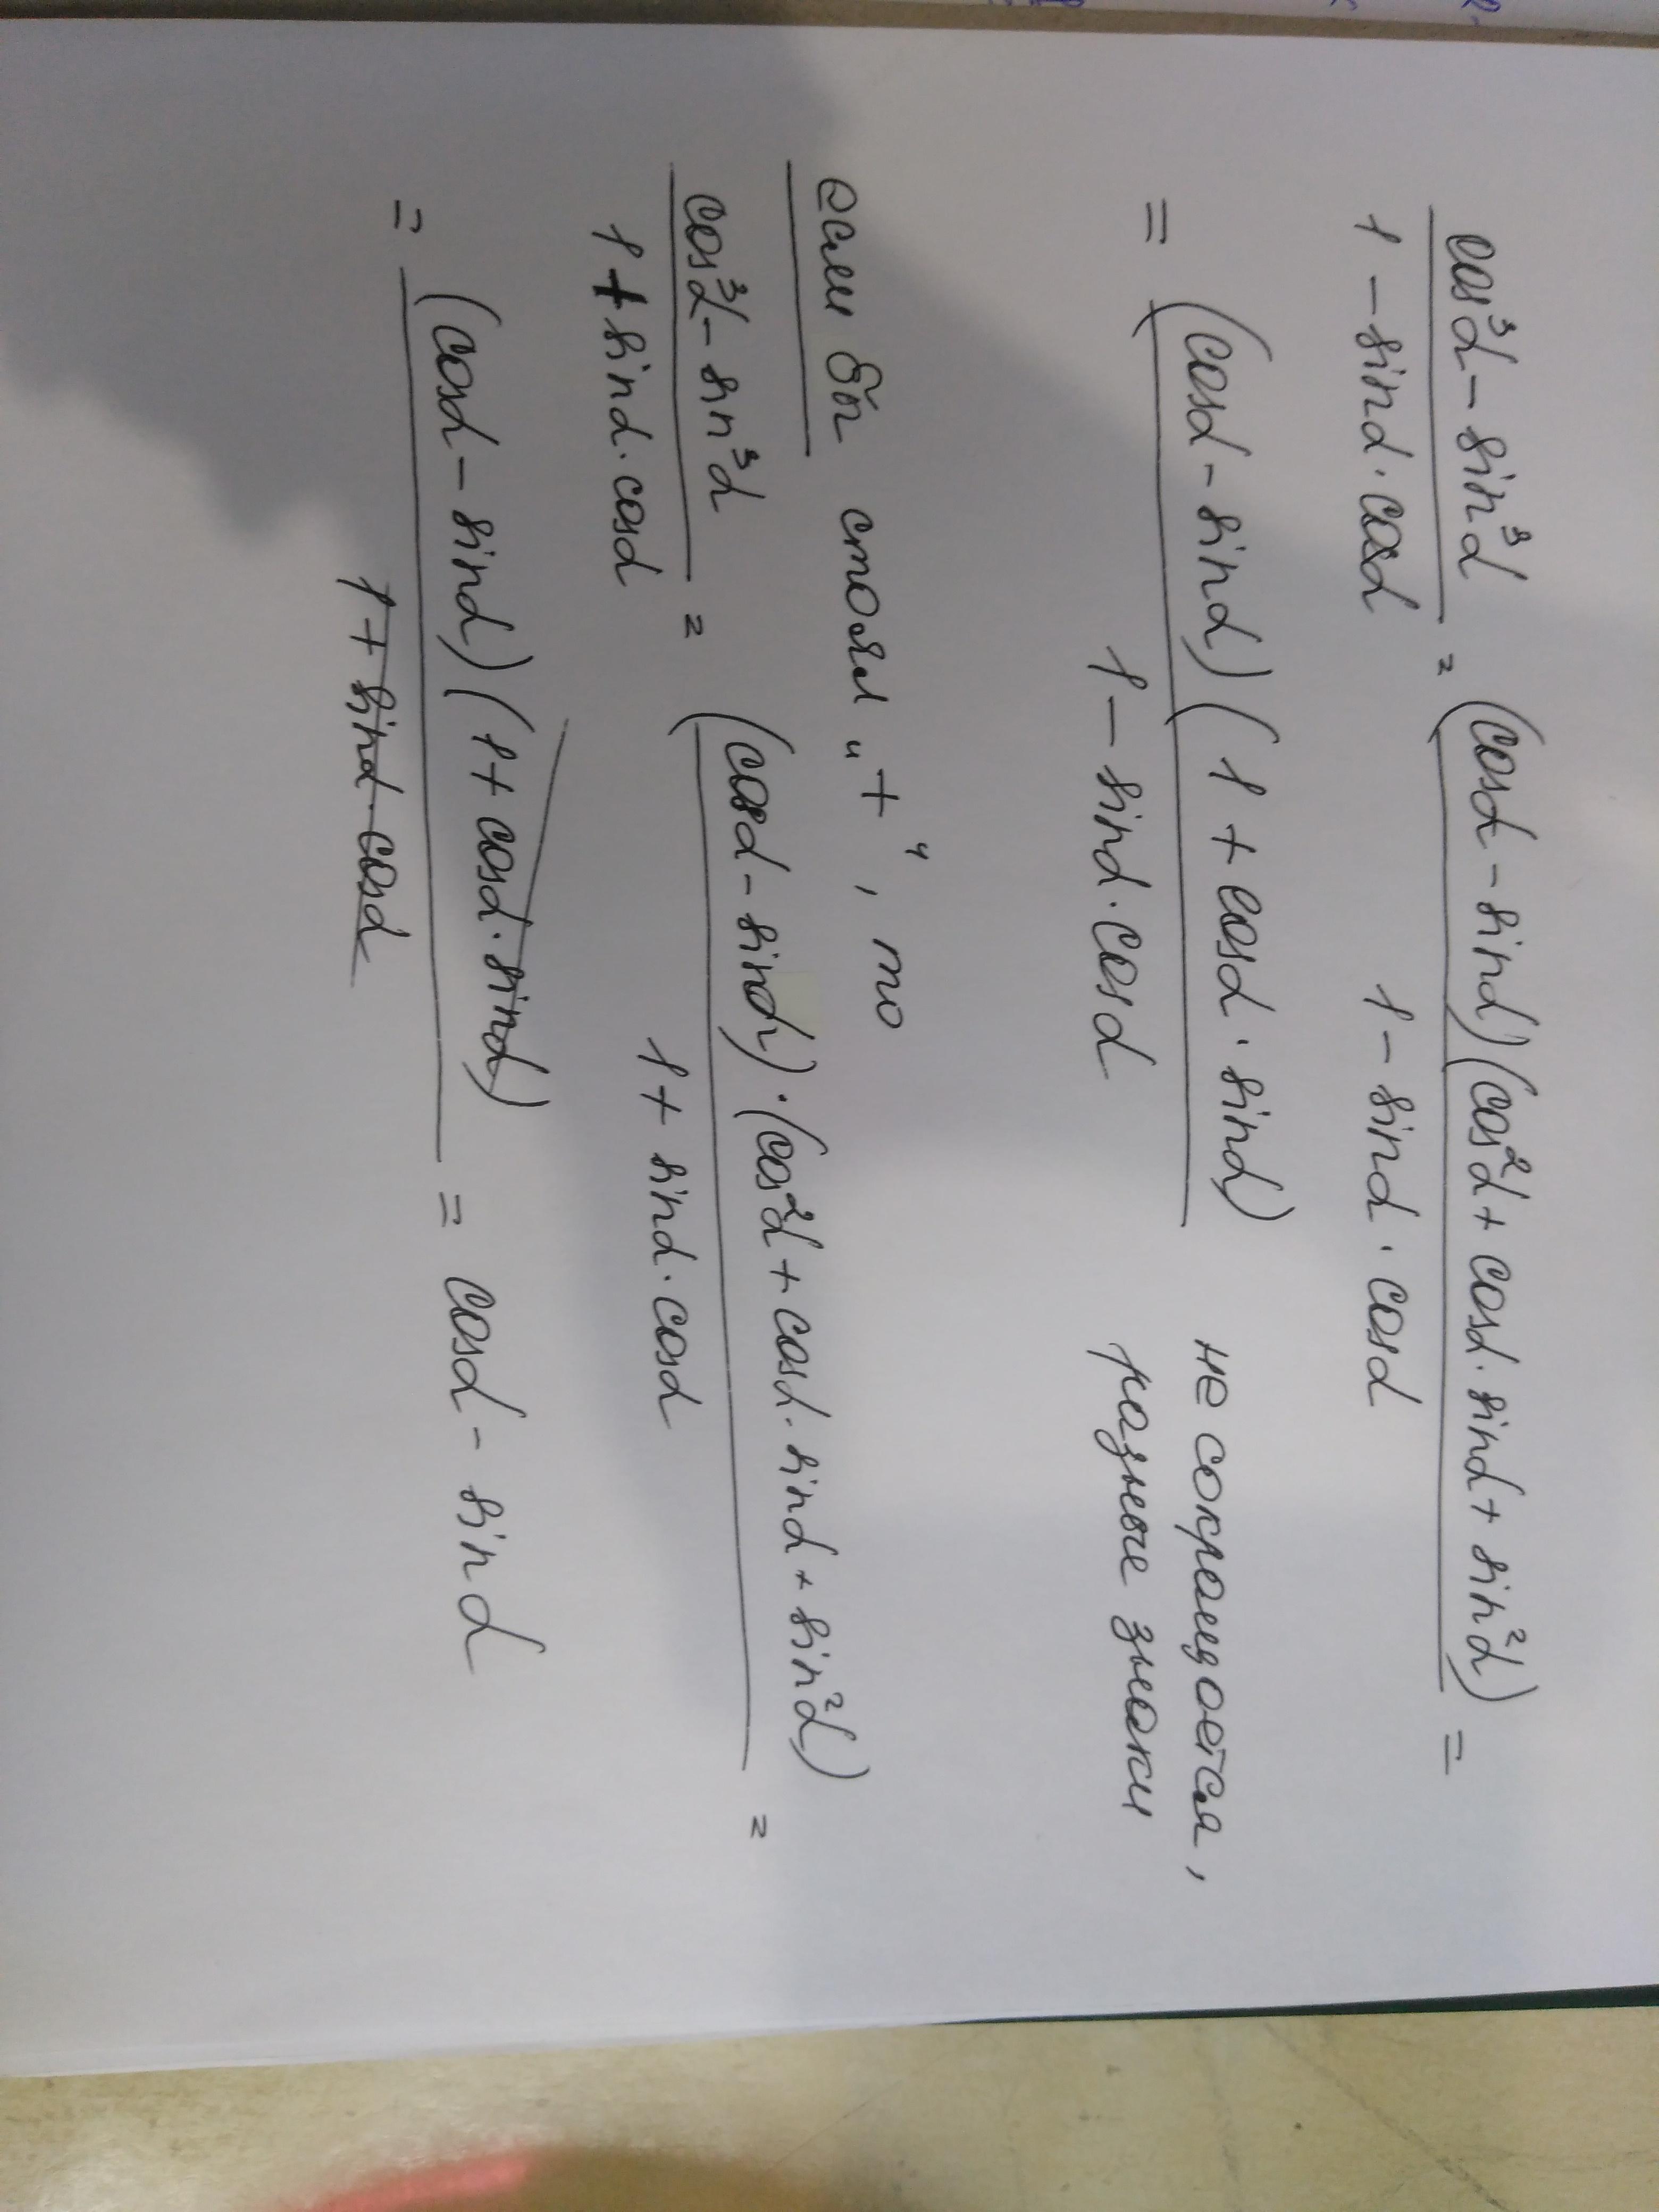 cos³α - sin³α / 1 - sinα · cosα = (cosα - sinα)(cos²α + cosα · sinα + sin²α) / 1 - sinα · cosα =
= (cosα - sinα)(1 + cosα · sinα) / 1 - sinα · cosα не сокращается, разные знаки
если бы стоял „+“, то
cos³α - sin³α / 1 + sinα · cosα = (cosα - sinα) · (cos²α + cosα · sinα + sin²α) / 1 + sinα · cosα =
= (cosα - sinα)(1 + cosα · sinα) / 1 + sinα · cosα = cosα - sinα